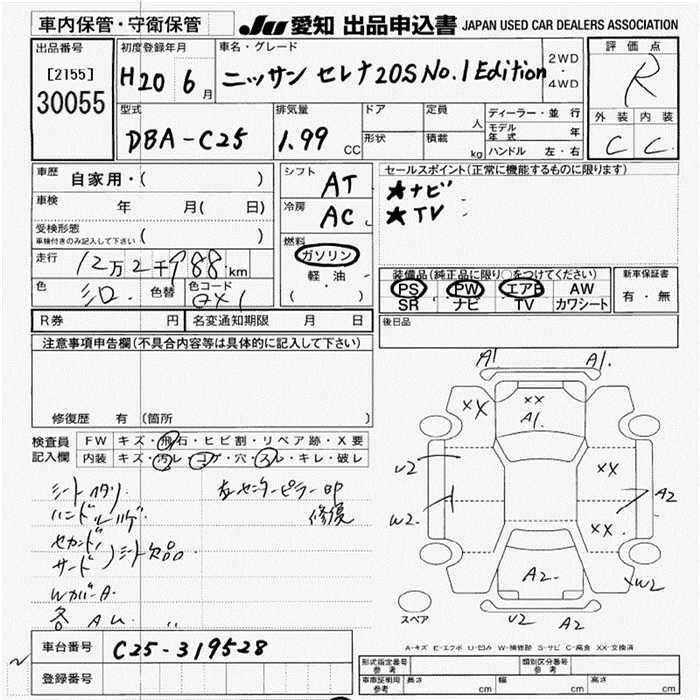 車内保管・守衛保管
JU 愛知 出品申込書 JAPAN USED CAR DEALERS ASSOCIATION
出品番号
[2155]
30055
初度登録年月
H20 6月
車名・グレード
ニッサン セレナ 20S No.1 Edition
2WD
・
4WD
評価点
R
型式
DBA-C25
排気量
1.99 CC
ドア
形状
定員
人
積載
kg
ディーラー・並行
モデル年式 年
ハンドル 左・右
外装 内装
C C
車歴
自家用・( )
車検
年 月( 日)
受検形態
車検付きのみ記入して下さい
( )
走行
12万2千988km
色
シロ
色替
色コード
QX1
シフト
AT
冷房
AC
燃料
ガソリン
軽油
( )
セールスポイント(正常に機能するものに限ります)
★ナビ
★TV
装備品(純正品に限り○をつけてください)
PS PW エアB AW
SR ナビ TV カワシート
新車保証書
有・無
R券 円
名変通知期限 月 日
後日品
注意事項申告欄(不具合内容等は具体的に記入して下さい)
修復歴 有 (箇所 )
検査員
記入欄
FW キズ・飛石・ヒビ割・リペア跡・X要
内装 キズ・汚レ・コゲ・穴・スレ・キレ・破レ
シートヘタリ
ハンドルハゲ
セカンド
サード
シート欠品
WカバーA
各 AU
左センターピラー凹
修復
A1 A1
XX
XX
A1
U2
W2
XX
XX
A2
A2
W2
U2 A2
スペア
A-キズ E-エクボ U-凹み W-補修跡 S-サビ C-腐食 XX-交換済
車台番号
C25-319528
登録番号
形式指定番号
参考
類別区分番号
参考
車庫証明用
参考
長さ cm
幅 cm
高さ cm